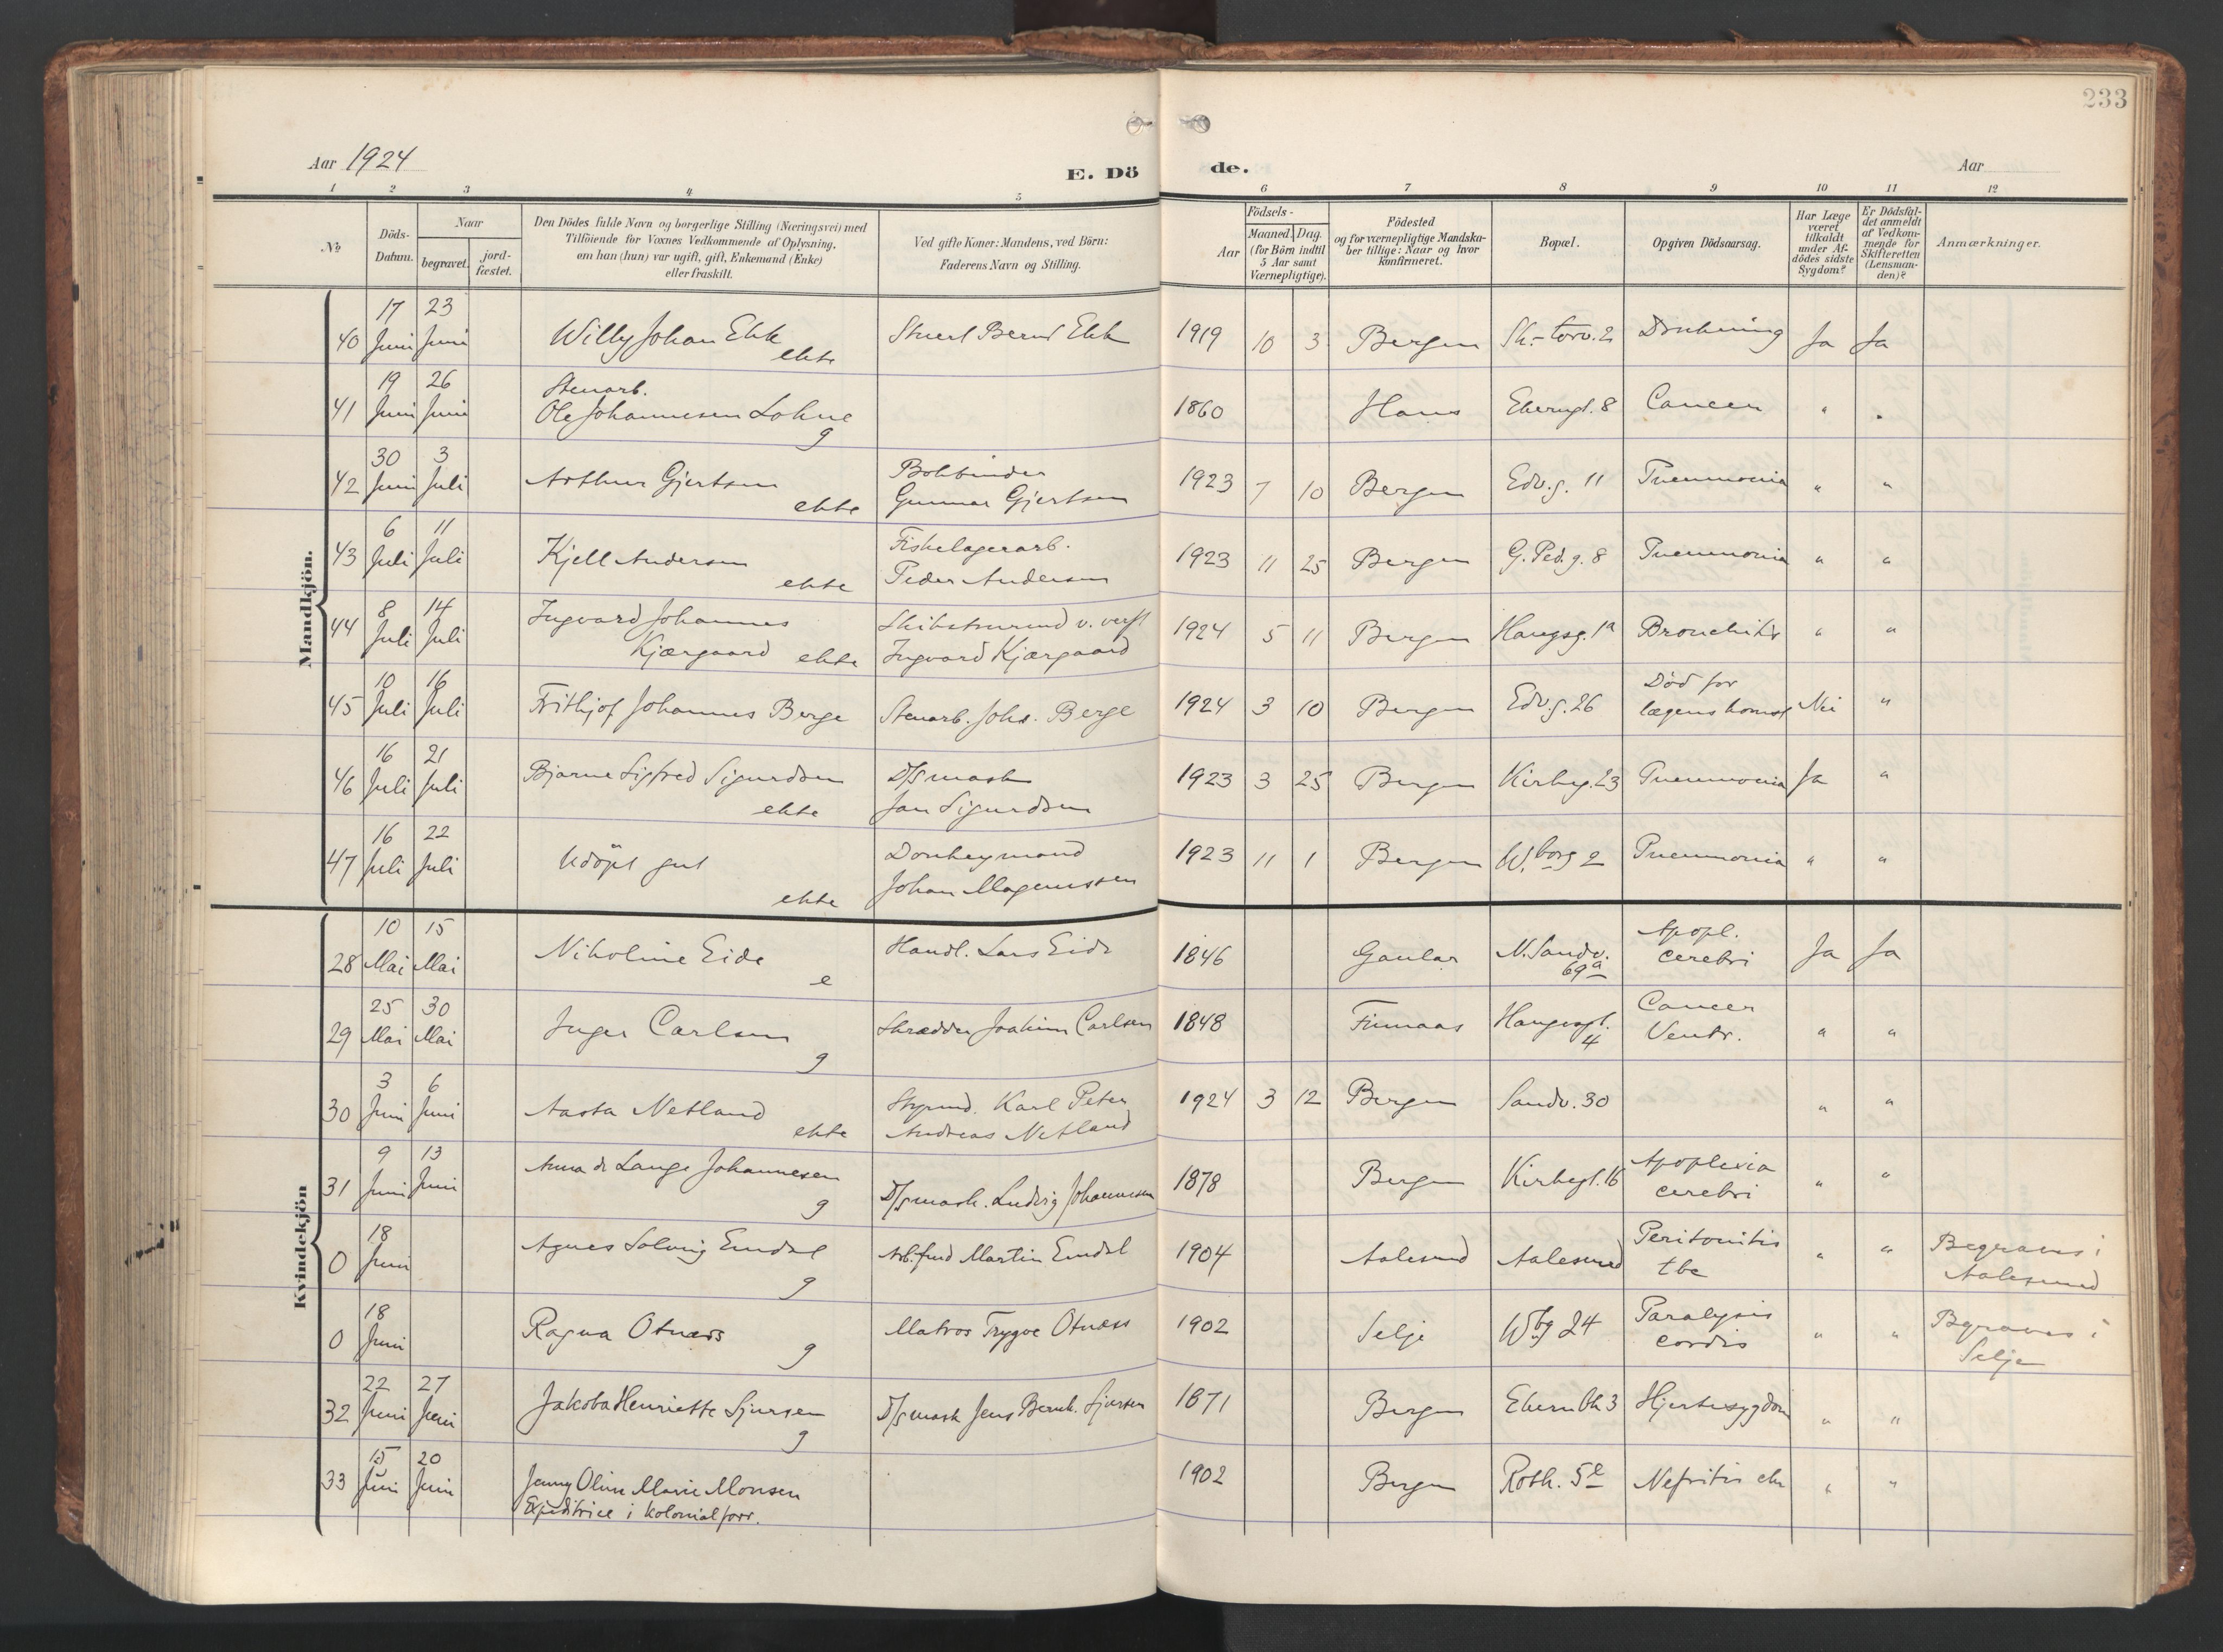 233
Aar 1924
E. Dö
de.
Aar
1 2 3 4 5 6 7 8 9 10 11 12
No
Döds-
Datum.
Naar
begravet.
jord-
fæstet.
Den Dödes fulde Navn og borgerlige Stilling (Næringsvei) med
Tilföiende for Voxnes Vedkommende af Oplysning,
om han (hun) var ugift, gift, Enkemand (Enke)
eller fraskilt.
Ved gifte Koner: Mandens, ved Börn:
Faderens Navn og Stilling.
Födsels-
Aar
Maaned. Dag.
(for Börn indtil
5 Aar samt
Værnepligtige).
Födested
og for værnepligtige Mandska-
ber tillige: Naar og hvor
konfirmeret.
Bopæl.
Opgiven Dödsaarsag.
Har Læge
været
tilkaldt
under Af-
dödes sidste
Sygdom?
Er Dödsfal-
det anmeldt
af Vedkom-
mende for
Skifteretten
(Lensman-
den)?
Anmærkninger.
Mandkjön.
40 17 Juni 23 Juni Willy Johan Ekk ekte Bernt Ekk 1919 10 3 Bergen Sk.-torv. 2 Drukning Ja Ja
41 19 Juni 26 Juni Stenarb.
Ole Johannesen Lohne g 1860 Haus 8 Cancer " "
42 30 Juni 3 Juli Arthur Gjertsen ekte Bokbinder
Gunnar Gjertsen 1923 7 10 Bergen Edv.g. 11 Pneumonia " "
43 6 Juli 11 Juli Kjell Andersen ekte Fiskelagerarb.
Peder Andersen 1923 11 25 Bergen G. Ped.g. 8 Pneumonia " "
44 8 Juli 14 Juli Ingvard Johannes
Kjærgaard ekte v. verft
Ingvard Kjærgaard 1924 5 11 Bergen Haugsg. 1a Bronchitis " "
45 10 Juli 16 Juli Frithjof Johannes Berge Stenarb. Johs. Berge 1924 3 10 Bergen Edv.g. 26 Död for
lægens komst Nei "
46 16 Juli 21 Juli Bjarne Sigfred Sigurdsen ekte D/S mask
Jan Sigurdsen 1923 3 25 Bergen Kirkeg. 23 Pneumonia Ja "
47 16 Juli 22 Juli Udöpt gut ekte Donkeymand
Johan Magnussen 1923 11 1 Bergen W.borg 2 Pneumonia " "
Kvindekjön
28 10 Mai 15 Mai Nikoline Eide e Handl. Lars Eide 1846 Gaular N. Sandv.
69a Apopl.
cerebri Ja Ja
29 25 Mai 30 Mai Inger Carlsen g Skrædder Joakim Carlsen 1848 Finnaas Haugespl.
4 Cancer
Ventr. " "
30 3 Juni 6 Juni Aasta Netland ekte Styrmd. Karl Peter
Andreas Netland 1924 3 12 Bergen Sandv. 30 " "
31 9 Juni 13 Juni Anna de Lange Johannesen g D/S mask. Ludvig Johannesen 1878 Bergen Kirkegt. 16 Apoplexia
cerebri " "
0 18 Juni Agnes Solveig Emdal g Arb.fmd Martin Emdal 1904 Aalesund Aalesund Peritonitis
tbc " " Begraves i
Aalesund
0 18 Juni Ragna Otnæss g Matros Trygve Otnæss 1902 Selje Wbg 24 Paralysis
cordis " " Begraves i
Selje
32 22 Juni 27 Juni Jakoba Henriette Sjursen g D/S mask Jens Bernh. Sjursen 1871 Bergen 3 Hjertesygdom " "
33 15 Juni 20 Juni Jenny Oline Marie Monsen
Expeditrice i kolonialforr. 1902 Bergen Roth. 5e Nefritis chr " "